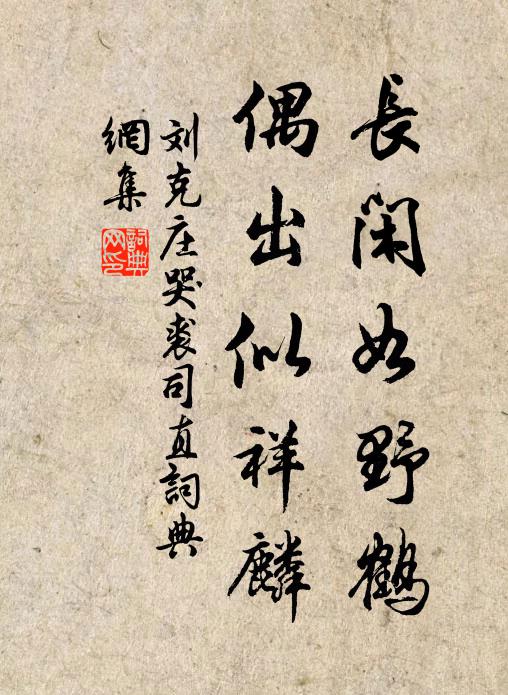 長閑如野鶴
偶出似祥麟
刘克庄哭裘司直詞典
網集
詞典網印